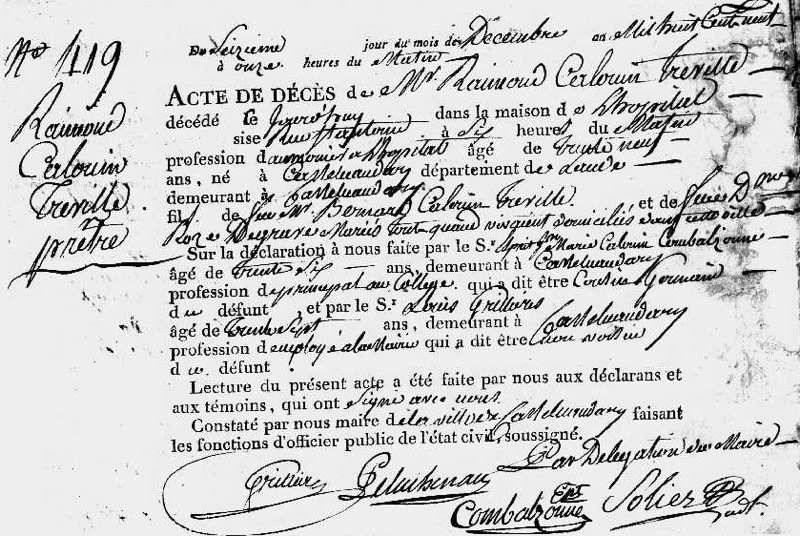 No 419
Raimond
Calouin
Treville
prêtre
Du Seizieme jour du mois de Décembre an Mil huit Cent neuf
à onze heures du Matin
ACTE DE DÉCÈS de Mr. Raimond Calouin Treville
décédé le jourd'huy dans la maison de L'hopital
sise Rue à Six heures du Matin
profession d'aumonier de L'hopital âgé de trente neuf
ans, né à Castelnaudary département de L'aude
demeurant à Castelnaudary
fils de feu Mr. Bernard Calouin Treville, et de feue D.
Roze Degrave Mariés tout quand vivoient domiciliés dans cette ville
Sur la déclaration à nous faite par le S. Marie Calouin Combalzonne
âgé de trente Six ans, demeurant à Castelnaudary
profession de principal au College qui a dit être Cousin Germain
du défunt, et par le S.r Louis Grillieres
âgé de trente Sept ans, demeurant à Castelnaudary
profession d'employé à la Mairie qui a dit être voisin
du défunt.
Lecture du présent acte a été faite par nous aux déclarans et
aux témoins, qui ont signé avec nous
Constaté par nous maire de la ville de Castelnaudary faisant
les fonctions d'officier public de l'état civil, soussigné.
Par Délégation du Maire
Combalzonne Solier